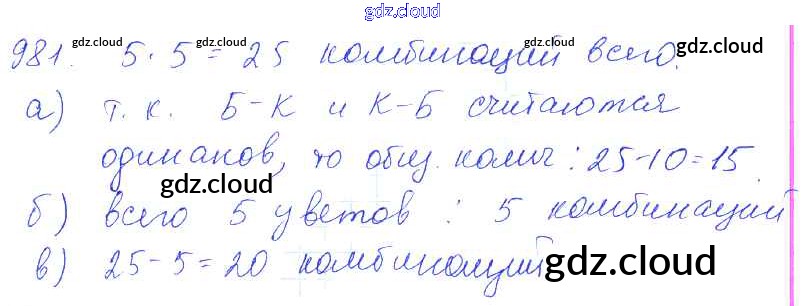 gdz.cloud
981. 5 · 5 = 25 комбинаций всего.
gdz.cloud gdz.cloud gdz.cloud gdz.cloud
а) т.к. Б-К и К-Б считаются
gdz.cloud gdz.cloud
одинаков, то общ. колич: 25-10=15.
gdz.cloud gdz.cloud
б) всего 5 цветов : 5 комбинаций
в) 25-5=20 комбинаций
gdz.cloud gdz.cloud